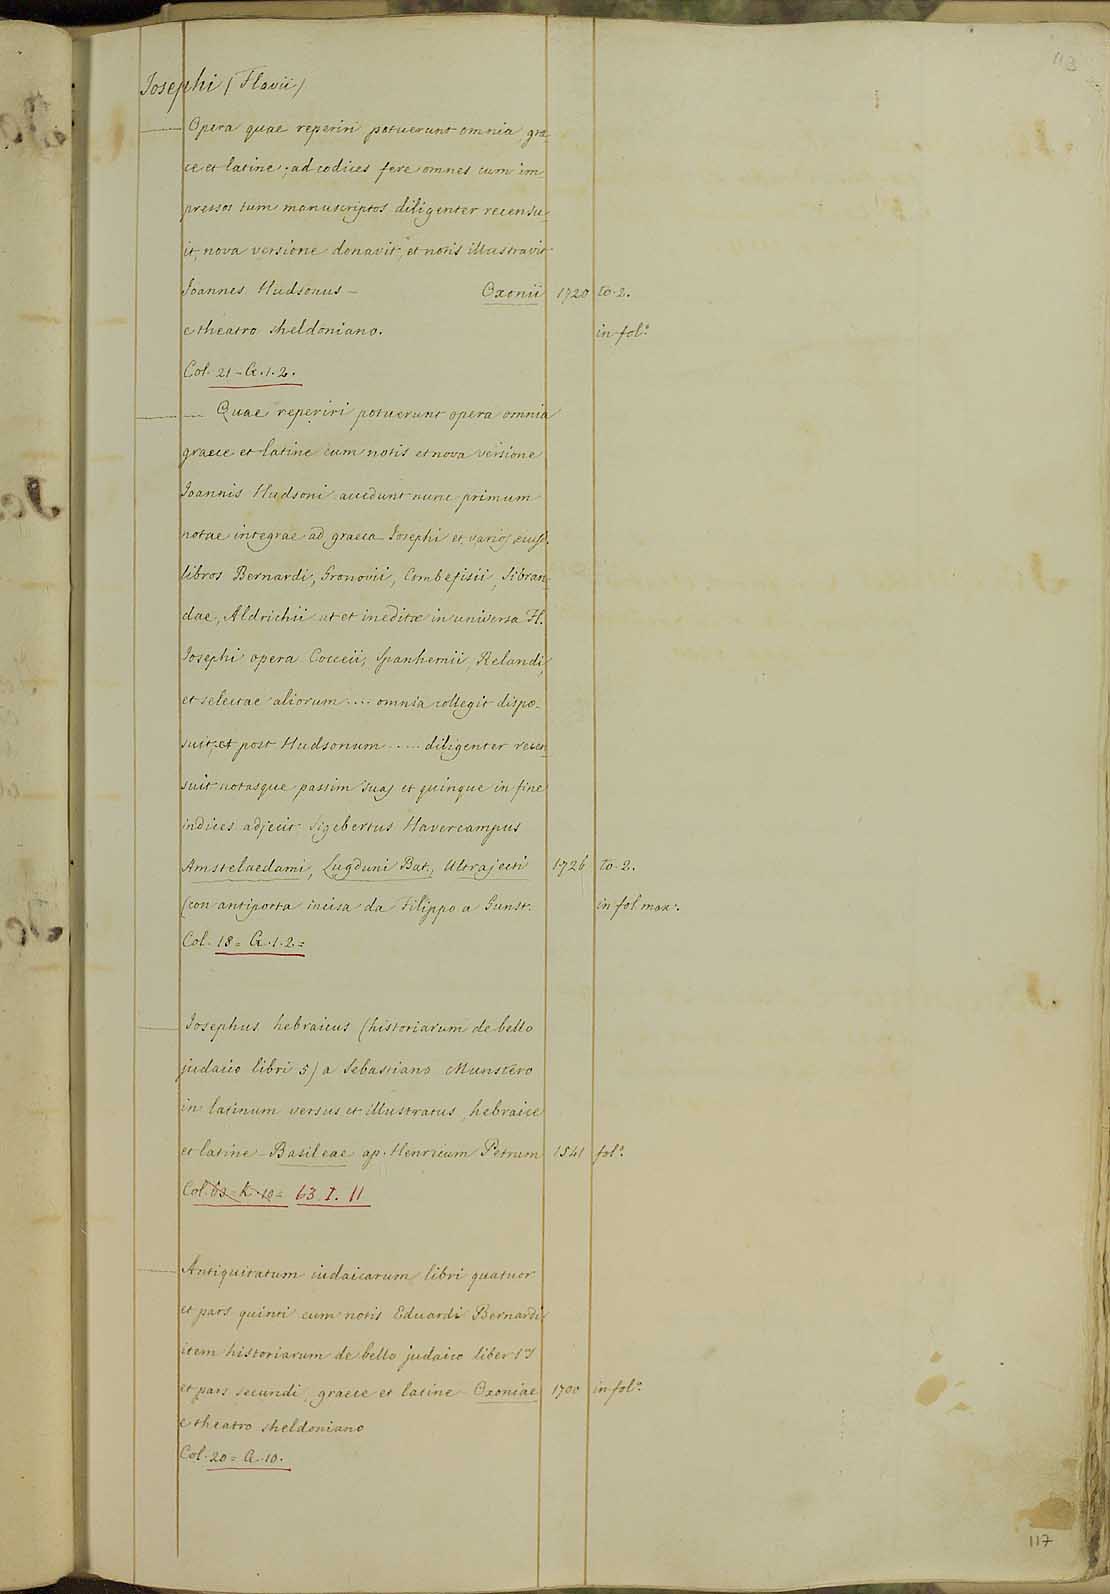 113
Josephi (Flavii)
— Opera quae reperiri potuerunt omnia, græ-
ce et latine; ad codices fere omnes cum im-
pressos tum manuscriptos diligenter recensu-
it, nova versione donavit, et notis illustravit
Joannes Hudsonus – Oxonii 1720 to. 2.
e theatro sheldoniano. in fol.º
Col. 21 = G. 1. 2.
— Quae reperiri potuerunt opera omnia
graece et latine cum notis et nova versione
Joannis Hudsoni accedunt nunc primum
notae integrae ad graeca Josephi et varios eiusd.
libros Bernardi, Gronovii, Combefisii, Sibran-
dae, Aldrichii ut et ineditæ in universa Fl.
Josephi opera Cocceii, Spanhemii, Relandi,
et selectae aliorum .... omnia collegit dispo-
suit, et post Hudsonum ..... diligenter recen-
suit notasque passim suas et quinque in fine
indices adjecit Sigebertus Havercampus
Amstelaedami, Lugduni Bat, Ultrajecti 1726 to. 2.
(con antiporta incisa da Filippo a Gunst. in fol max.
Col. 18 = G. 1. 2 =
— Josephus hebraicus (historiarum de bello
judaico libri 5) a Sebastiano Munstero
in latinum versus et illustratus, hebraice
et latine – Basileae ap. Henricum Petrum 1541 fol.º
Col. 63 = K. 10 = 63 I. 11
— Antiquitatum iudaicarum libri quatuor
et pars quinti cum notis Eduardi Bernardi
item historiarum de bello judaico liber 1.s
et pars secundi, graece et latine – Oxoniae 1700 in fol.º
e theatro sheldoniano
Col. 20 = G. 10.
117